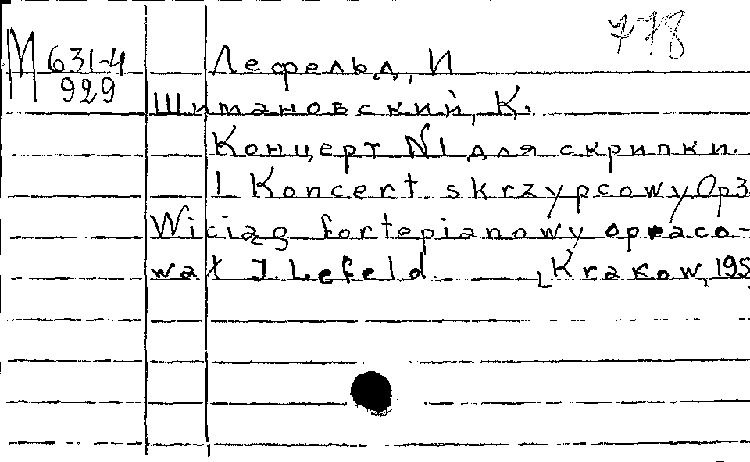 778
М 631-4
929
Лефельд, И
Шимановский, К.
Концерт N1 для скрипки.
I Koncert skrzypcowy Op3
Wiciąg fortepianowy opraco-
wał J. Lefeld [Krakow, 195